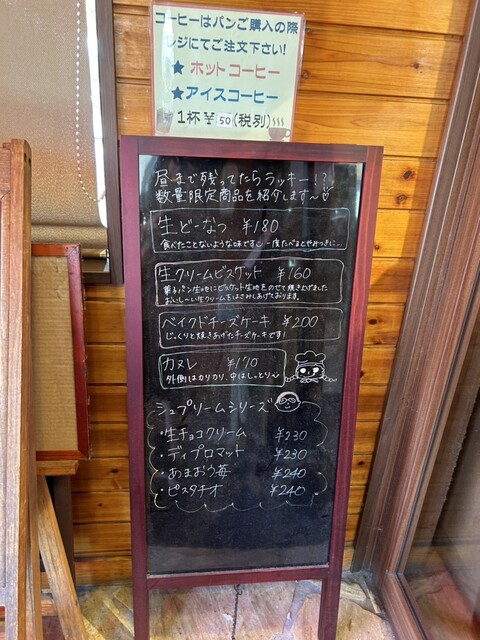 コーヒーはパンご購入の際
レジにてご注文下さい!
★ ホットコーヒー
★アイスコーヒー
1杯 ¥50(税別)
昼まで残ってたらラッキー!?
数量限定商品を紹介します〜♡
生どーなつ ¥180
食べたことないような味です 一度たべるとやみつきに…
生クリームビスケット ¥160
菓子パン生地にビスケット生地をのせて焼き上げました
おいし〜い生クリームをはさみあげております。
ベイクドチーズケーキ ¥200
じっくりと焼きあげたチーズケーキです!
カヌレ ¥170
外側はカリカリ 中はしっとり
シュプリームシリーズ
・生チョコクリーム ¥230
・ディプロマット ¥230
・あまおう苺 ¥240
・ピスタチオ ¥240